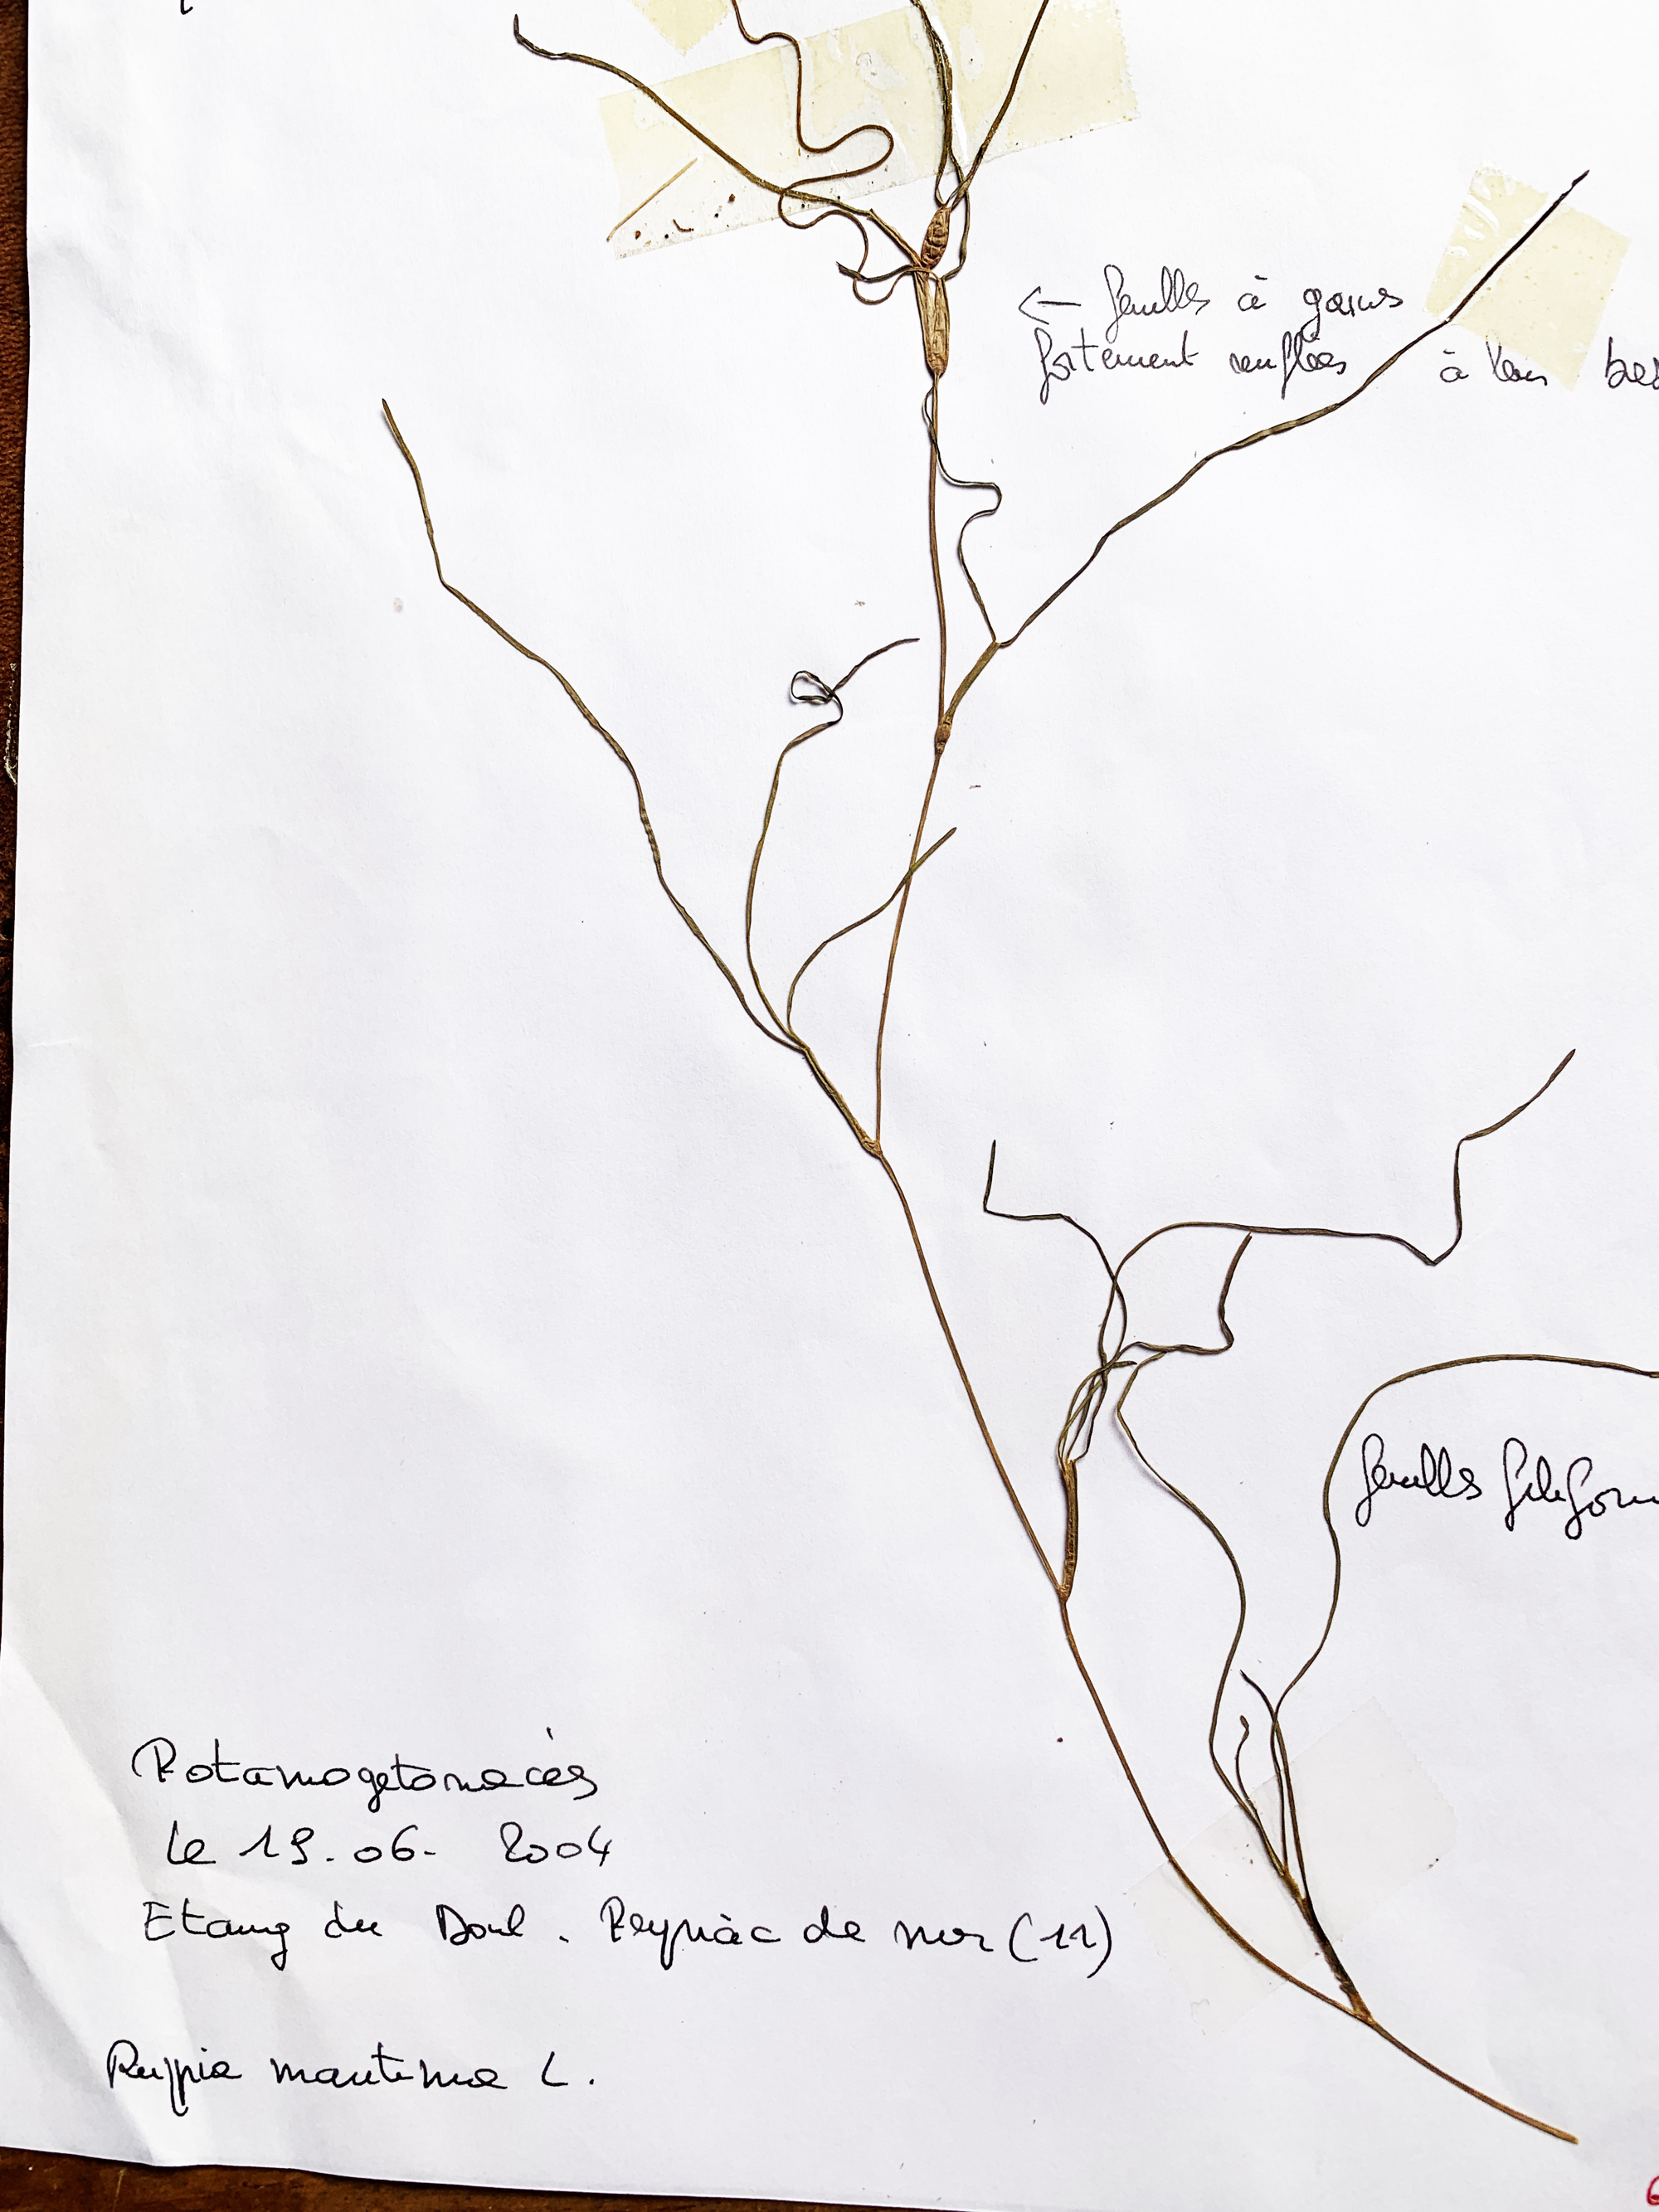 ← feuilles à gaines
fortement renflées à leur bas
feuilles filiform
Potamogetonacées
le 19.06.2004
Etang du Doul. Peyriac de mer (11)
Ruppia maritima L.